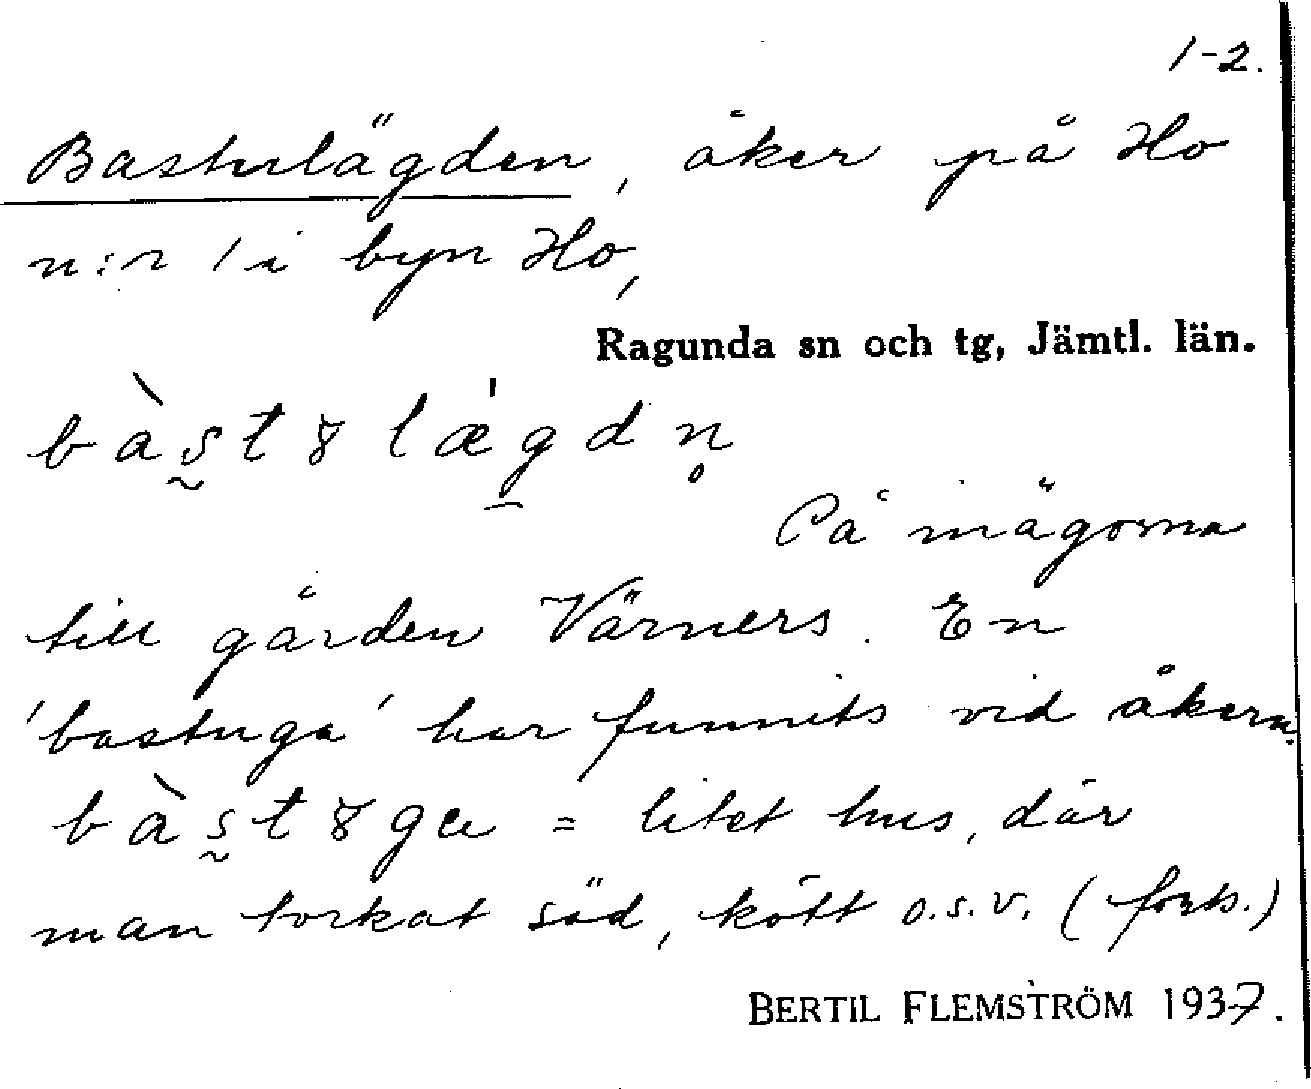 1-2.
Basturlägden, åker på Ho
n:r 1 i byn Ho,
Ragunda sn och tg, Jämtl. län.
bàs̰t8lǽg̱dn̥
På inägorna
till gården Värners. En
'bastuga' har funnits vid åkern.
bàs̰t8ga = litet hus, där
man torkat säd, kött o.s.v. (forts.)
BERTIL FLEMSTRÖM 1937.